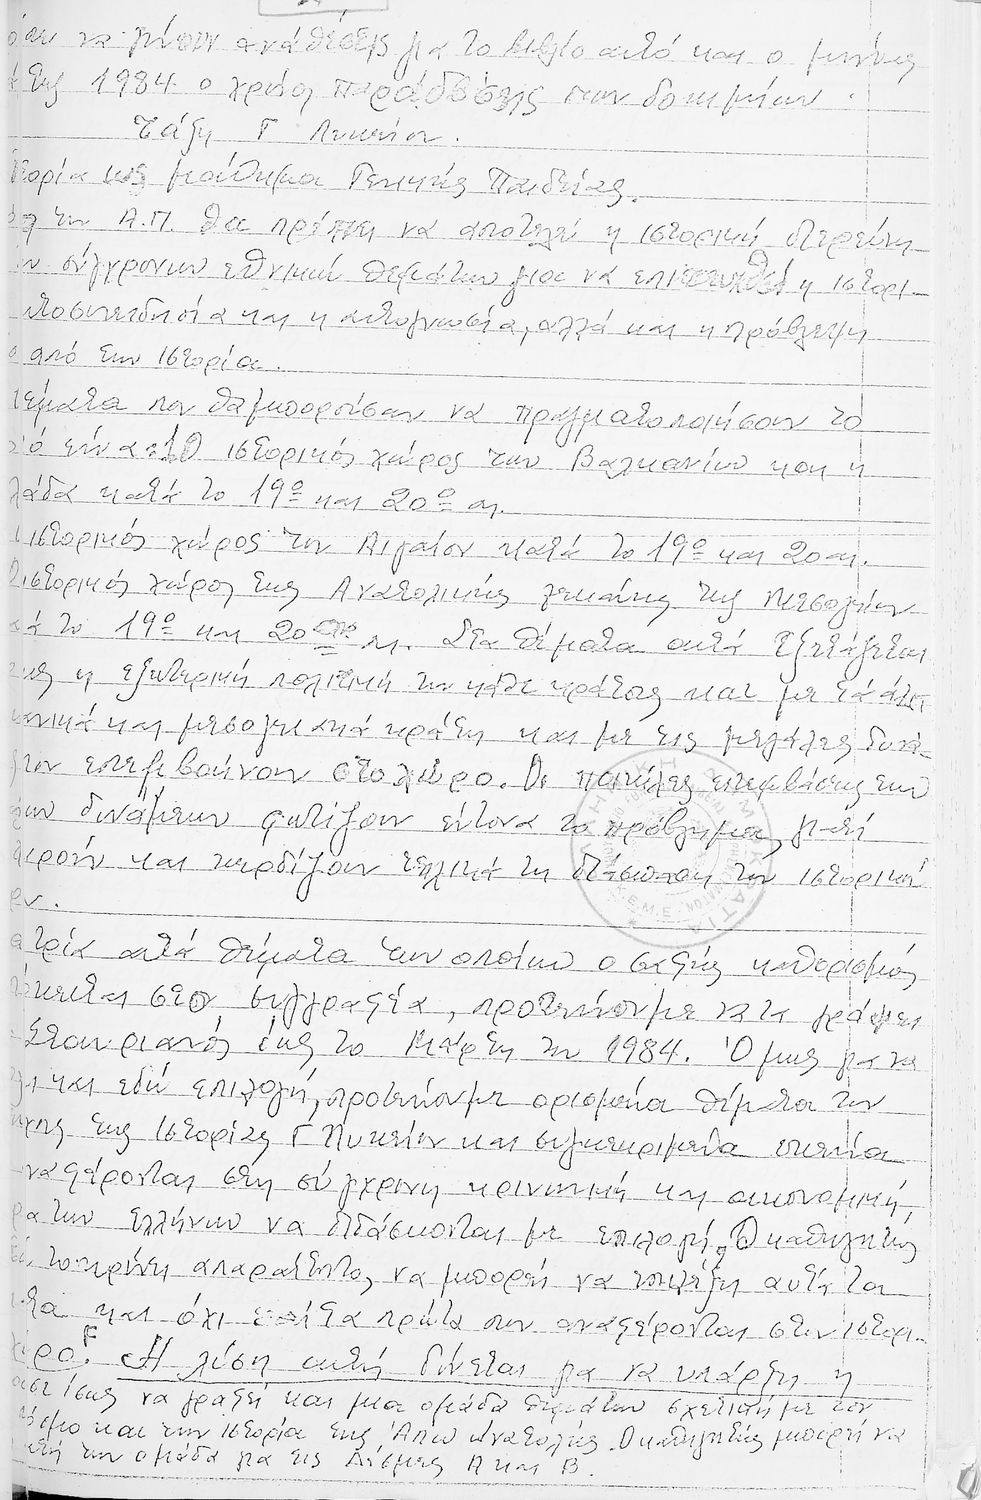 να γίνουν αναθέσεις για το βιβλίο αυτό και ο μήνας
της 1984 ο χρόνος παράδοσης των δοκιμίων.
Τάξη Γ Λυκείου.
τορία ως μάθημα Γενικής Παιδείας.
το Α.Π. θα πρέπει να αποτελεί η ιστορική διερεύνη-
ν σύγχρονων εθνικών θεμάτων για να επιτευχθεί η ιστορι-
υτοσυνειδησία και η αυτογνωσία, αλλά και η πρόβλεψη
από την ιστορία.
έματα που θα μπορούσαν να πραγματοποιήσουν το
είναι: 1 Ο ιστορικός χώρος των Βαλκανίων και η
λάδα κατά το 19ο και 20ο αι.
ιστορικός χώρος του Αιγαίου κατά το 19ο και 20 αι.
ιστορικός χώρος της Ανατολικής λεκάνης της Μεσογείου
τά το 19ο και 20 αι. Στα θέματα αυτά εξετάζεται
η εξωτερική πολιτική του κάθε κράτους και με τα άλλα
κανικά και μεσογειακά κράτη και με τις μεγάλες δυνά-
που επεμβαίνουν στο χώρο. Οι ποικίλες επεμβάσεις των
λων δυνάμεων φωτίζουν έντονα το πρόβλημα, γιατί
και κερδίζουν τελικά τη διάσπαση του ιστορικού
ρου.
τρία αυτά θέματα των οποίων ο σαφής καθορισμός
κειται στον συγγραφέα, προτείνουμε να τα γράψει
Σταυριανός έως το Μάρτη του 1984. Όμως για να
και εδώ επιλογή, προτείνουμε ορισμένα θέματα του
της Ιστορίας Γ Λυκείου και συγκεκριμένα εκείνα
ναφέρονται στη σύγχρονη κοινωνική και οικονομική,
των Ελλήνων να διδάσκονται με επιλογή. Ο καθηγητής
το κρίνει απαραίτητο, να μπορεί να επιλέξει αυτά τα
και όχι τα πρώτα που αναφέρονται στον ιστορι-
χώρο. Η λύση αυτή δίνεται για να υπάρξει η
ίσως να γραφεί και μια ομάδα θεμάτων σχετική με τον
σμο και την Ιστορία της Άπω Ανατολής. Ο καθηγητής μπορεί να
την ομάδα για τις Δέσμες Α και Β.